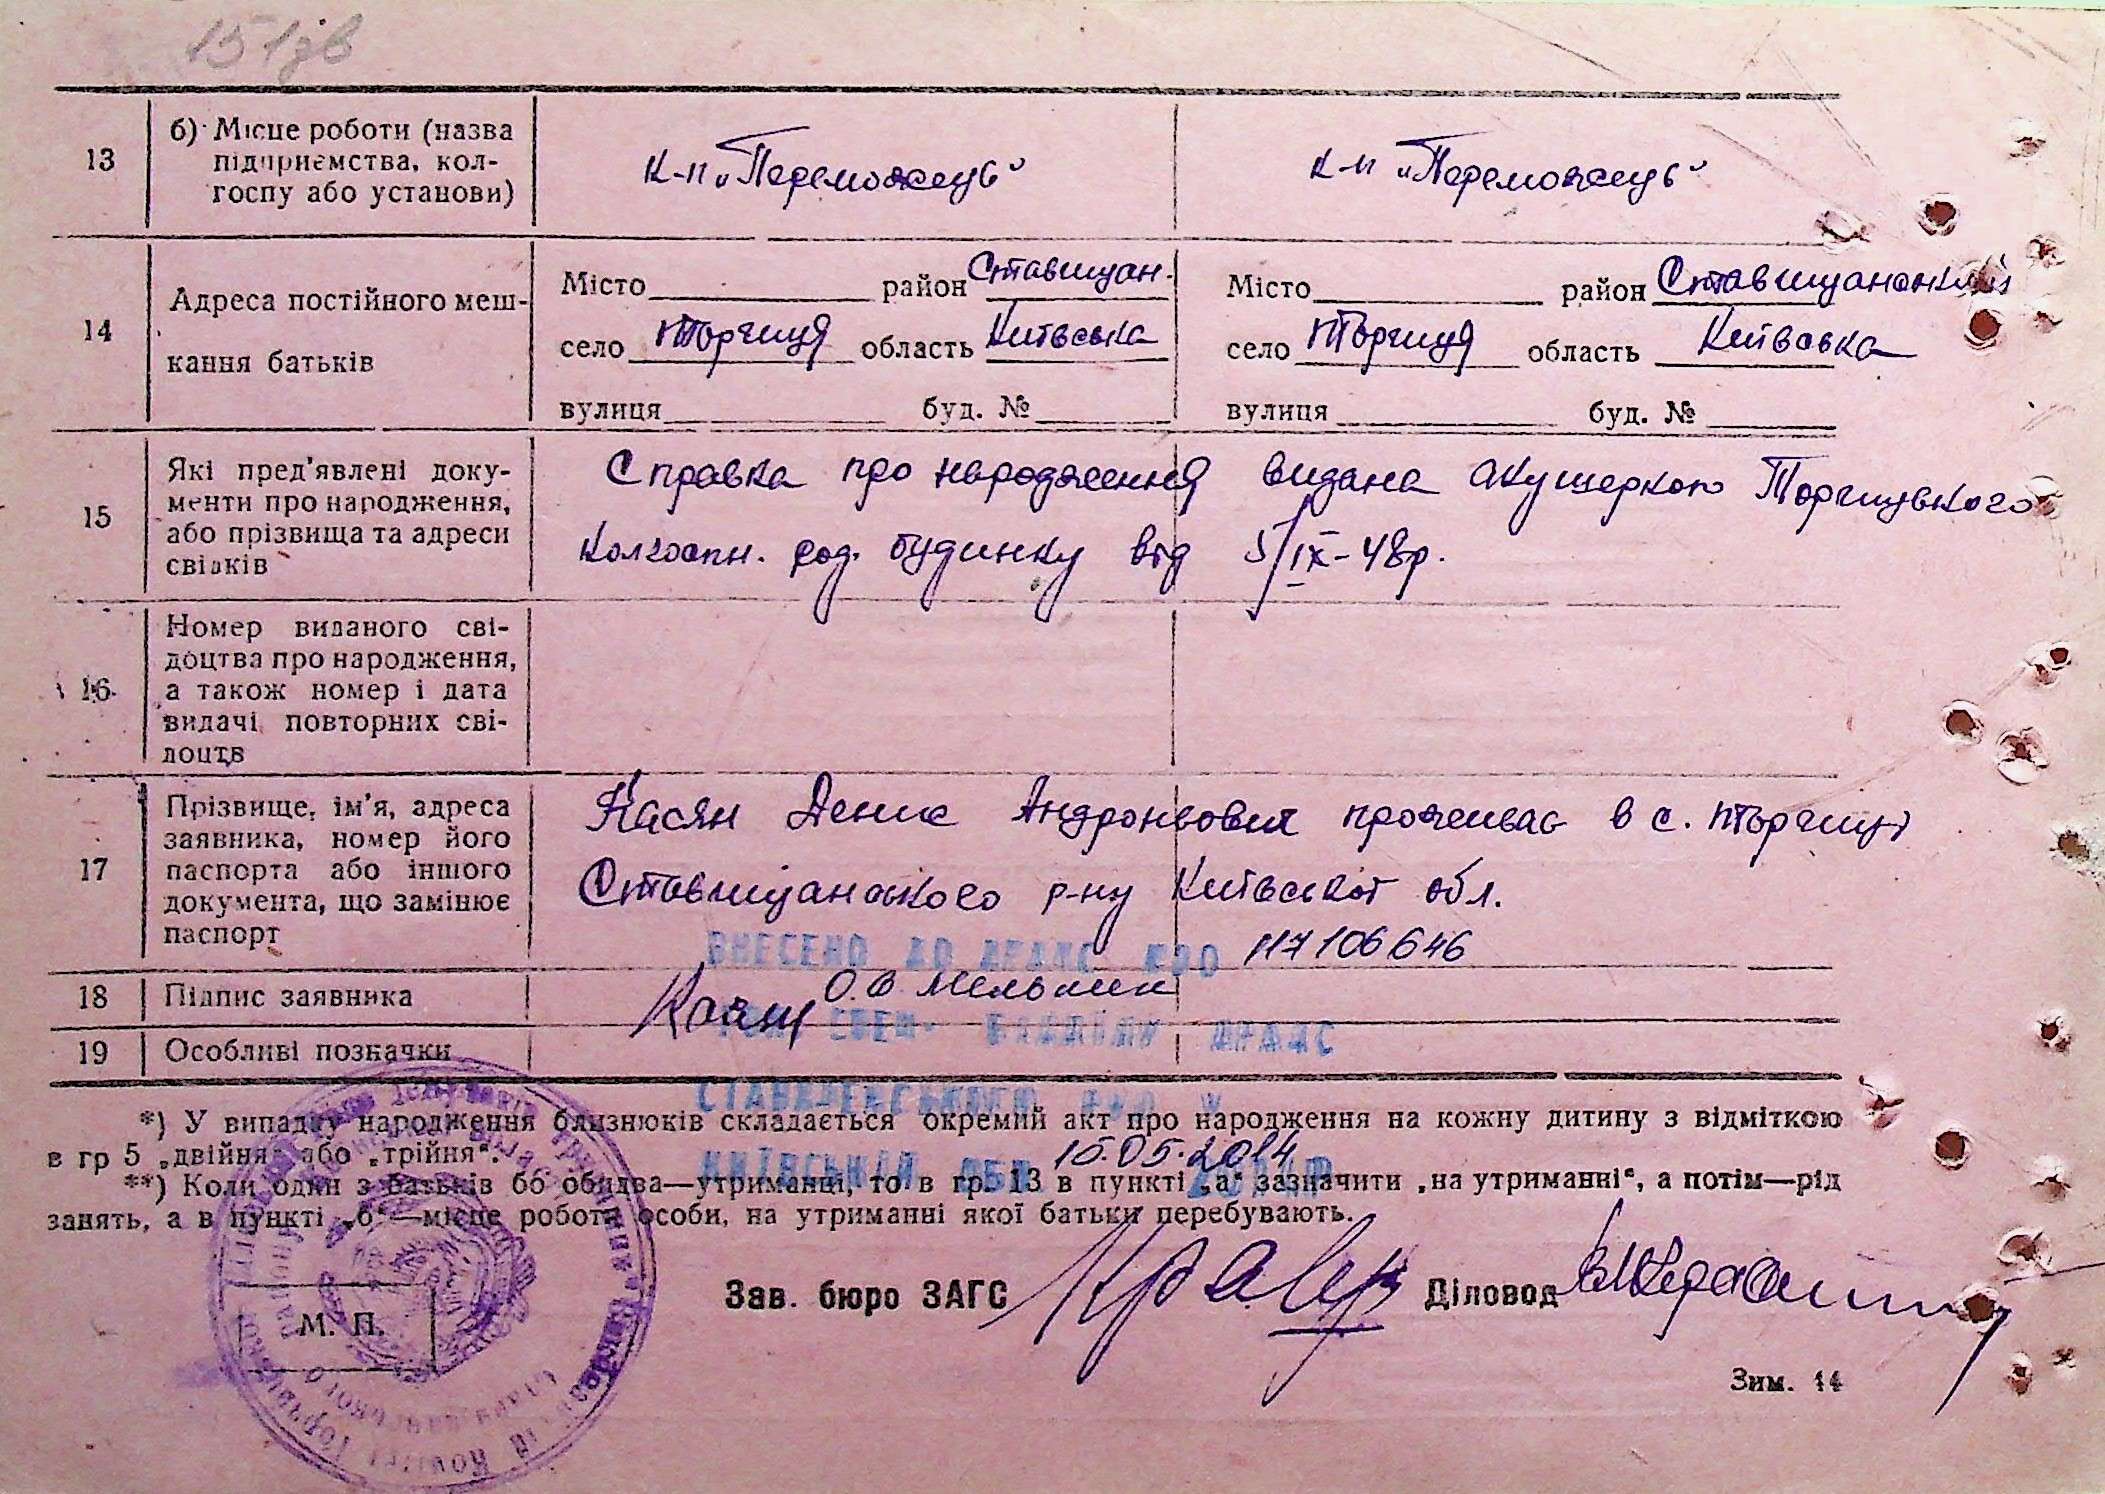 151зв
13
б) Місце роботи (назва
підприємства, кол-
госпу або установи)
к-п „Переможець"
к-п „Переможець"
14
Адреса постійного меш-
кання батьків
Місто район Ставищан.
село Торчиця область Київська
вулиця буд. №
Місто район Ставищанський
село Торчиця область Київська
вулиця буд. №
15
Які пред'явлені доку-
менти про народження,
або прізвища та адреси
свідків
Справка про народження видана акушеркою Торчицького
колгоспн. род. будинку від 5/IX-48р.
16
Номер виданого сві-
доцтва про народження,
а також номер і дата
видачі повторних сві-
доцтв
17
Прізвище, ім'я, адреса
заявника, номер його
паспорта або іншого
документа, що замінює
паспорт
Касян Денис Андронович проживає в с. Торчиці
Ставищанського р-ну Київської обл.
ВНЕСЕНО ДО ДРАЦС 117106646
18
Підпис заявника
Касян О.В. Мельник
ВІДДІЛУ ДРАЦС
19
Особливі позначки
*) У випадку народження близнюків складається окремий акт про народження на кожну дитину з відміткою
в гр 5 „двійня" або „трійня".
15.05.2014
КИЇВСЬКІЙ ОБЛ.
**) Коли один з батьків бо обидва—утриманці, то в гр. 13 в пункті „а" зазначити „на утриманні", а потім—рід
занять, а в пункті „б"—місце роботи особи, на утриманні якої батьки перебувають.
Зав. бюро ЗАГС
Діловод
М. П.
Зим. 14